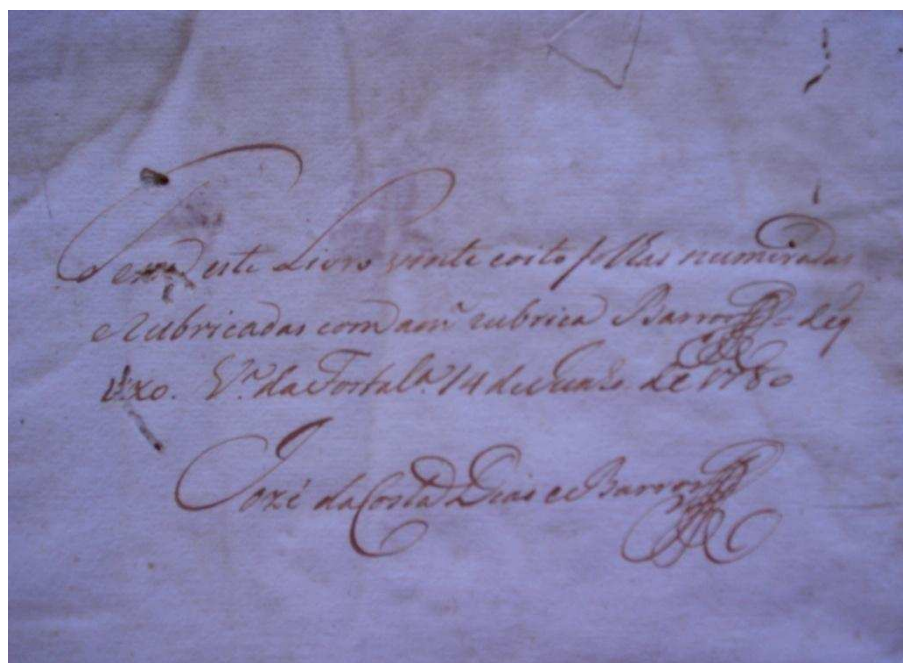 Tem este Livro vinte eoito folhas numeradas
eRubricadas com a m.ª rubrica Barros = de q
V.ª da Fortal.ª 14 de de 1780
Jozé da Costa Dias e Barros